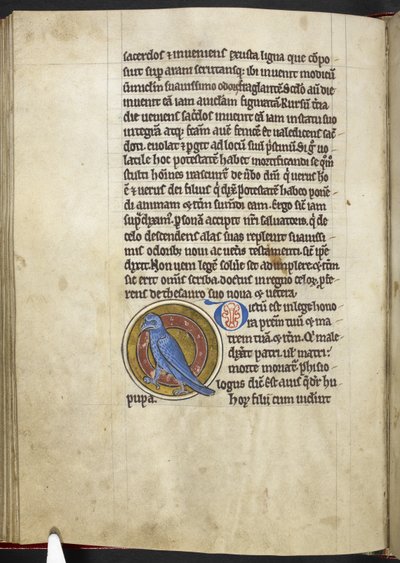 sacerdos ⁊ inveniens exusta ligna que cōpo
suit sup aram scrutansq: ibi invenit modicū
suauissimo odore fraglantē. Scd̄o aū die
invenit eā iam auiclam figuratā. Rursū tr̄cia
die veniens sac̄dos invenit eā iam in statu suo
integrā atq; auē fenicē et valedicens sac̄
doti. euolat ⁊ pgit ad locū suū pristinū. Si g̊ uo
latile hoc potestatē habet mortificandi se
stulti hōines irascunt̄ de v̄bo dn̄i qd̄ uerus hō
ē ⁊ uerus dei filius qd̄ dix̄ potestatē habeo pone
di animam ⁊ itm̄ sumdi eam. Ergo sic̄ iam
supdiximꝰ psonā accipit nr̄i saluatoris. qd̄ de
celo descendens alas suas repleuit suauissi
mis odoribꝫ noui ac uetis testamti. sic̄ ipse
dixit. Non ueni legē soluē sed adimplere. ⁊ itm̄
sic erit omīs scriba doctus in regno celoꝝ. pfe
rens de thesauro suo noua ⁊ uetera.
Dictū est in lege hono
ra patrem tuū ⁊ ma
trem tuā. ⁊ itm̄. Qi male
dix̄it patri. uł matri:
morte moriat̄. phisio
logus dicit̄. est auis q̄ dr̄ hu
pupa. Hoꝝ filij cum uidint̄